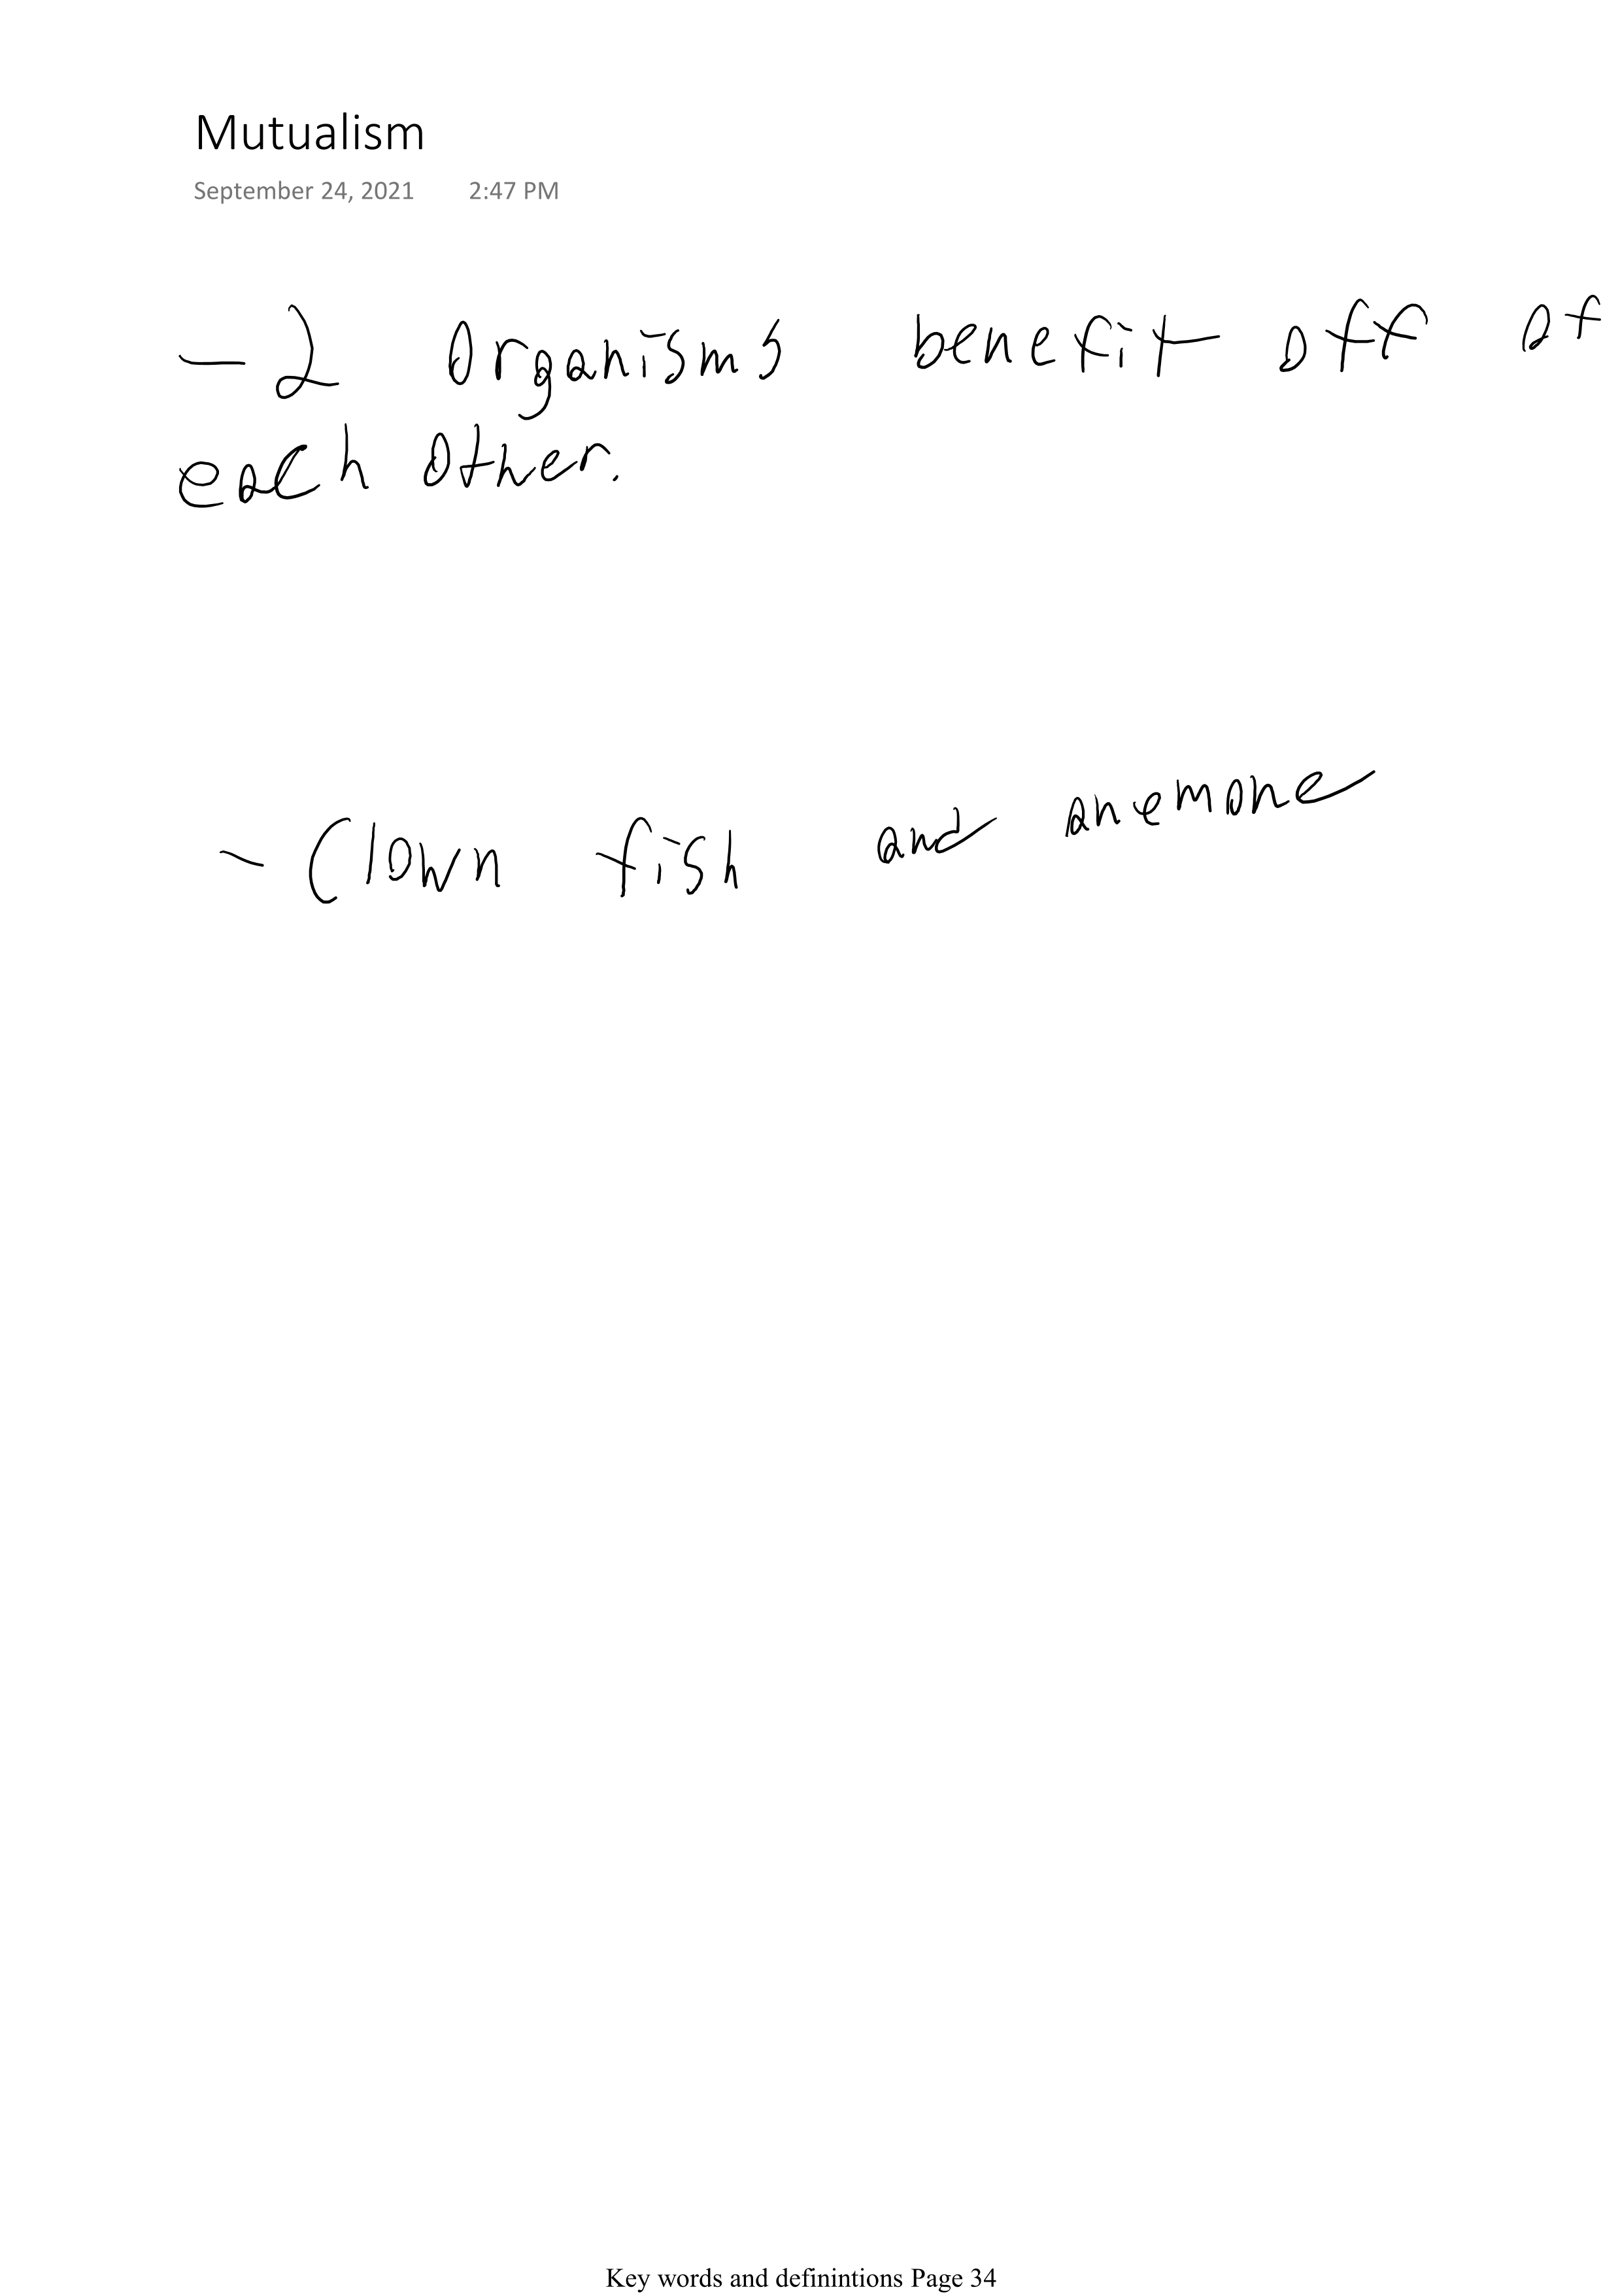 Mutualism
September 24, 2021 2:47 PM
- 2 organisms benefit off of
each other.
- Clown fish and anemone
Key words and definintions Page 34